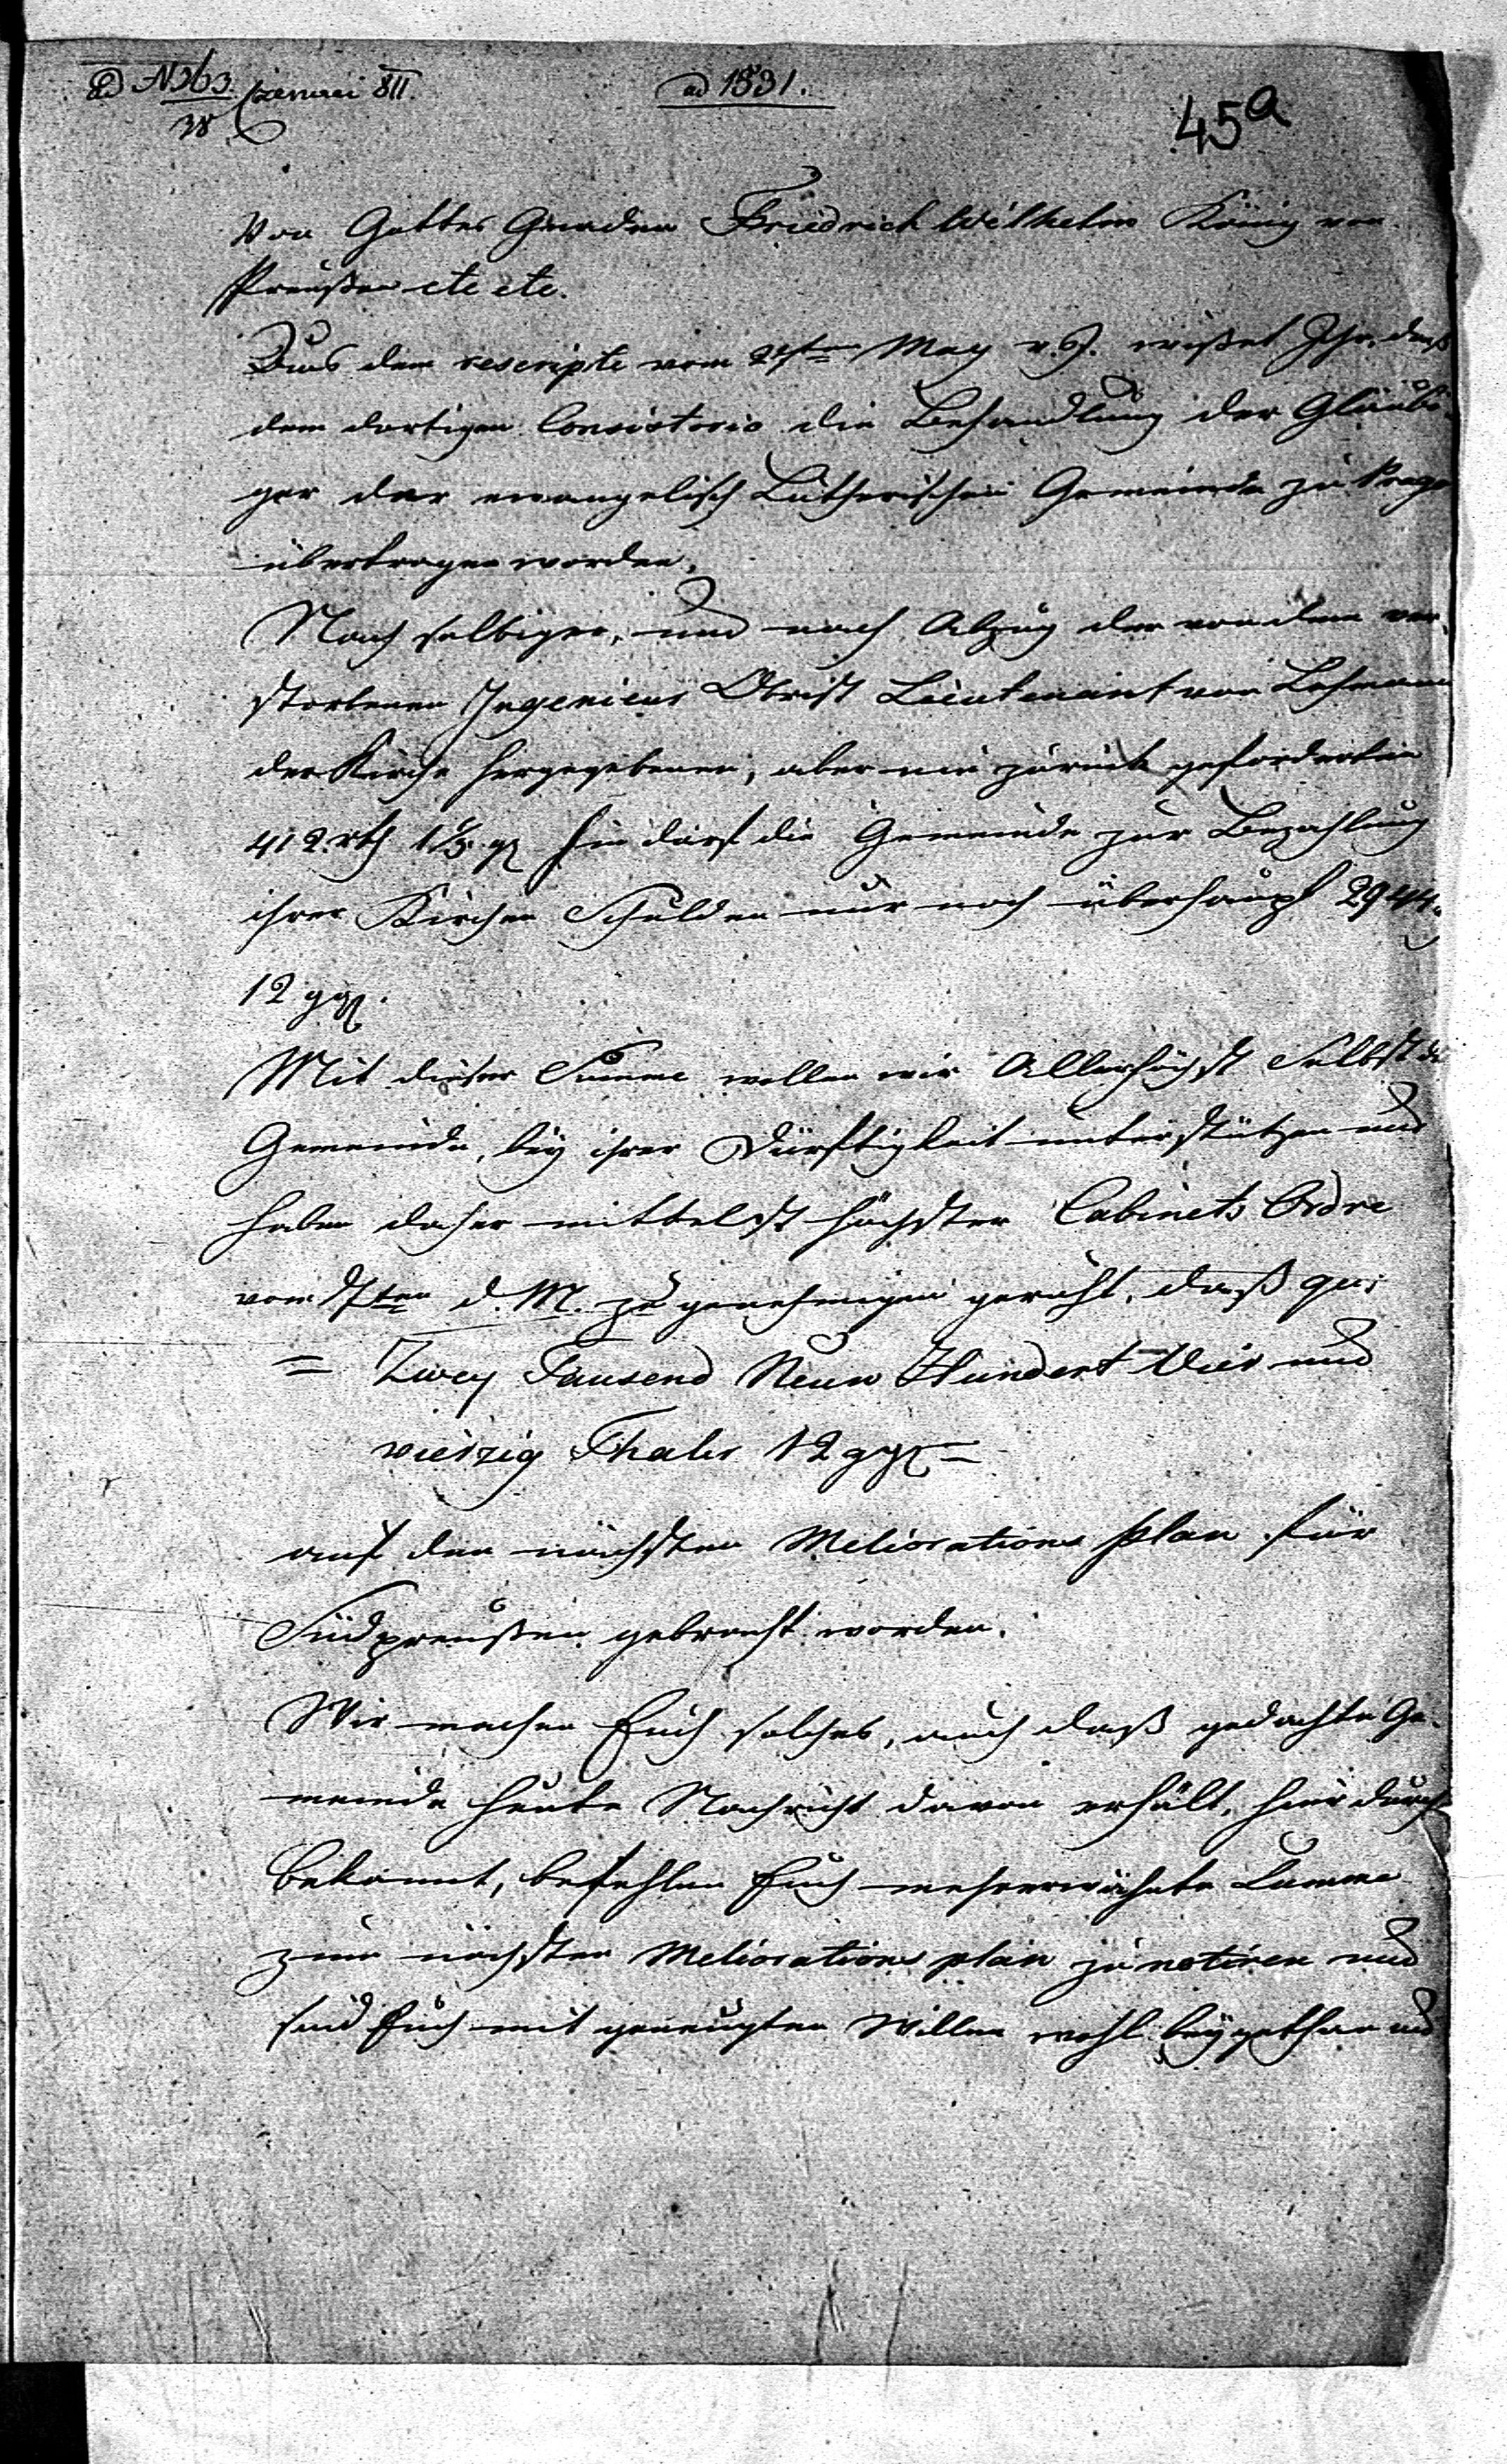 ad 1831.
45a
Von Gottes Gnaden Friedrich Wilhelm König von
Preußen etc etc.
Aus dem rescripte vom May v. J. wißet Ihr, daß
dem dortigen Consistorio die Behandlung der Gläubi-
ger der evangelisch Lutherischen Gemeinde zu Praga
übertragen worden.
Nach selbiger, und nach Abzug der von dem ver-
storbenen Ingenieur Obrist Lieutenant von Lehmann
der Kirche hergegebenen, aber nie zurück geforderten
412. rth hin darf die Gemeinde zur Bezahlung
ihrer Kirchen Schulden nur noch überhaupt 2944.
12 ggl.
Mit dieser Summe wollen wir Allerhöchst Selbst die
Gemeinde, bey ihrer Dürftigkeit unterstützen und
haben daher mittelst höchster Cabinets Ordre
vom d. M. zu genehmigen geruht, daß qu:
= Zwey Tausend Neun Hundert Vier und
vierzig Thaler 12 ggl =
auf den nächsten Meliorations plan für
Südpreußen gebracht worden.
Wir machen Euch solches, auch daß gedachte Ge-
meinde heute Nachricht davon erhält, hierdurch
bekannt, befehlen Euch mehrerwähnte Summe
zum nächsten Meliorations plan zu notiren und
sind Euch mit geneigten Willen wohl beygethan und